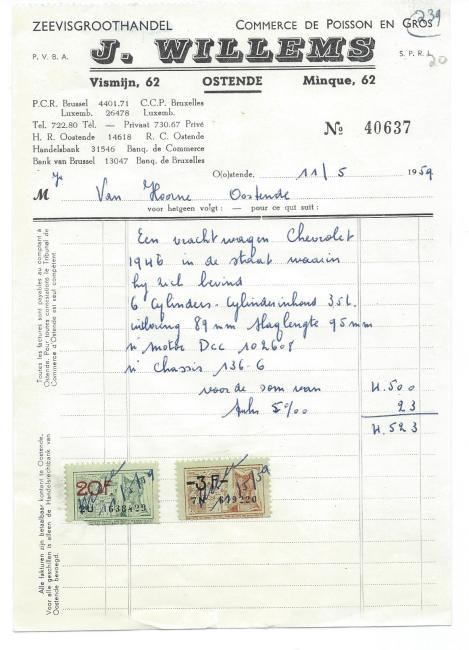 239
20
ZEEVISGROOTHANDEL COMMERCE DE POISSON EN GROS
P. V. B. A. J. WILLEMS S. P. R. L.
Vismijn, 62 OSTENDE Minque, 62
P.C.R. Brussel 4401.71 C.C.P. Bruxelles
Luxemb. 26478 Luxemb.
Tel. 722.80 Tél. — Privaat 730.67 Privé
H. R. Oostende 14618 R. C. Ostende
Handelsbank 31546 Banq. de Commerce
Bank van Brussel 13047 Banq. de Bruxelles
No 40637
O(o)stende, 11/5 1959
M Van Hoorne Oostende
voor hetgeen volgt : — pour ce qui suit :
Een vrachtwagen Chevrolet
1946 in de staat waarin
hij zich bevind
6 Cylinders - Cylinderinhoud 3.5 L.
uitboring 89 mm slaglengte 95 mm
n° motor Dcc 102608
n° chassis 136-6
voor de som van 4.500
5 ‰ 23
4.523
Toutes les factures sont payables au comptant à
Ostende. Pour toutes contestations le Tribunal de
Commerce d'Ostende est seul compétent.
Alle fakturen zijn betaalbaar kontant te Oostende.
Voor alle geschillen is alleen de Handelsrechtbank van
Oostende bevoegd.
20F
11/5/59
2U 1638429
-3F-
11/5/59
649220